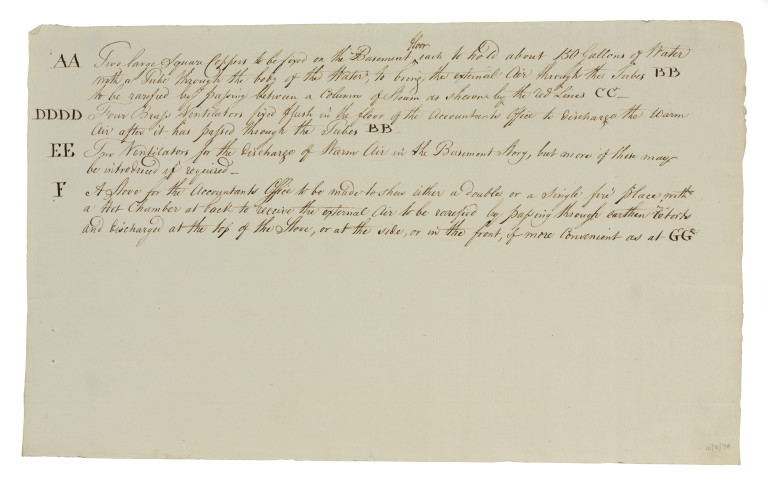 AA Two large Square Coppers to be fixed on the Basement floor each to hold about 150 Gallons of Water
with a Tube through the body of the Water, to bring the external Air through the Tubes BB
to be rarified by passing between a Column of Steam as shewn by the red Lines CC
DDDD Four Brass Ventilators fix'd flush in the floor of the Accountants Office to discharge the Warm
Air after it has passed through the Tubes BB
EE Two Ventilators for the discharge of Warm Air in the Basement Story, but more of them may
be introduced if required
F A Stove for the Accountants Office to be made to shew either a double or a single fire place, with
a Hot Chamber at back to receive the external Air to be rarified by passing through earthen Retorts
and discharged at the top of the Stove, or at the side, or in the front, if more Convenient as at GG